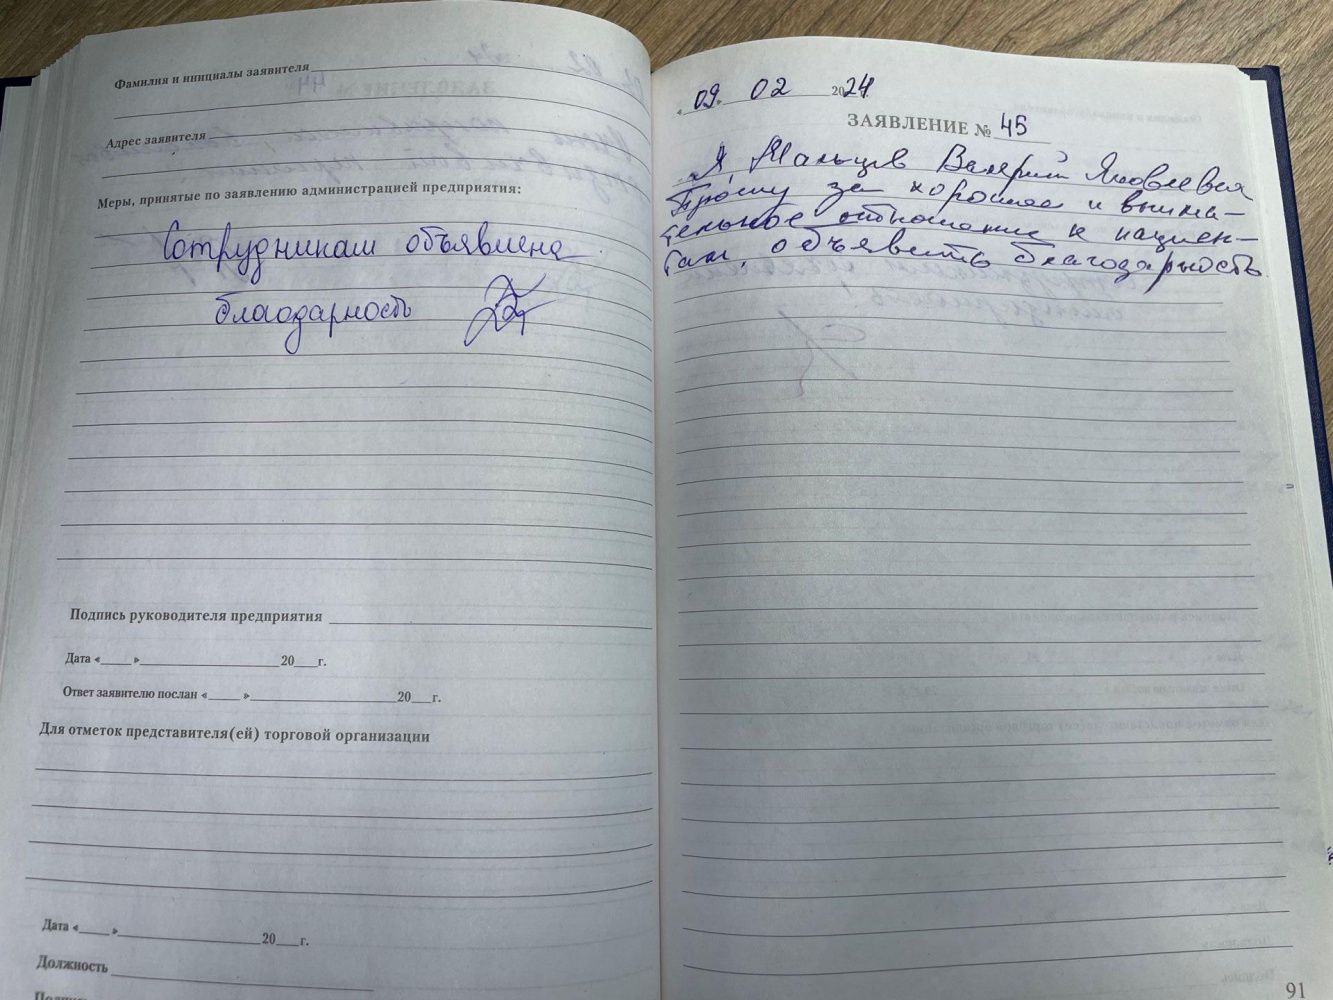 Фамилия и инициалы заявителя
Адрес заявителя
Меры, принятые по заявлению администрацией предприятия:
Сотрудникам объявлена
благодарность
Подпись руководителя предприятия
Дата «____» ____________ 20___г.
Ответ заявителю послан «____» ____________ 20___г.
Для отметок представителя(ей) торговой организации
Дата «____» ____________ 20___г.
Должность
«09» 02 2024
ЗАЯВЛЕНИЕ № 45
Я, Мальцев Валерий Яковлевич
Прошу за хорошее и внима-
тельное отношение к пациен-
там, объявить благодарность
91